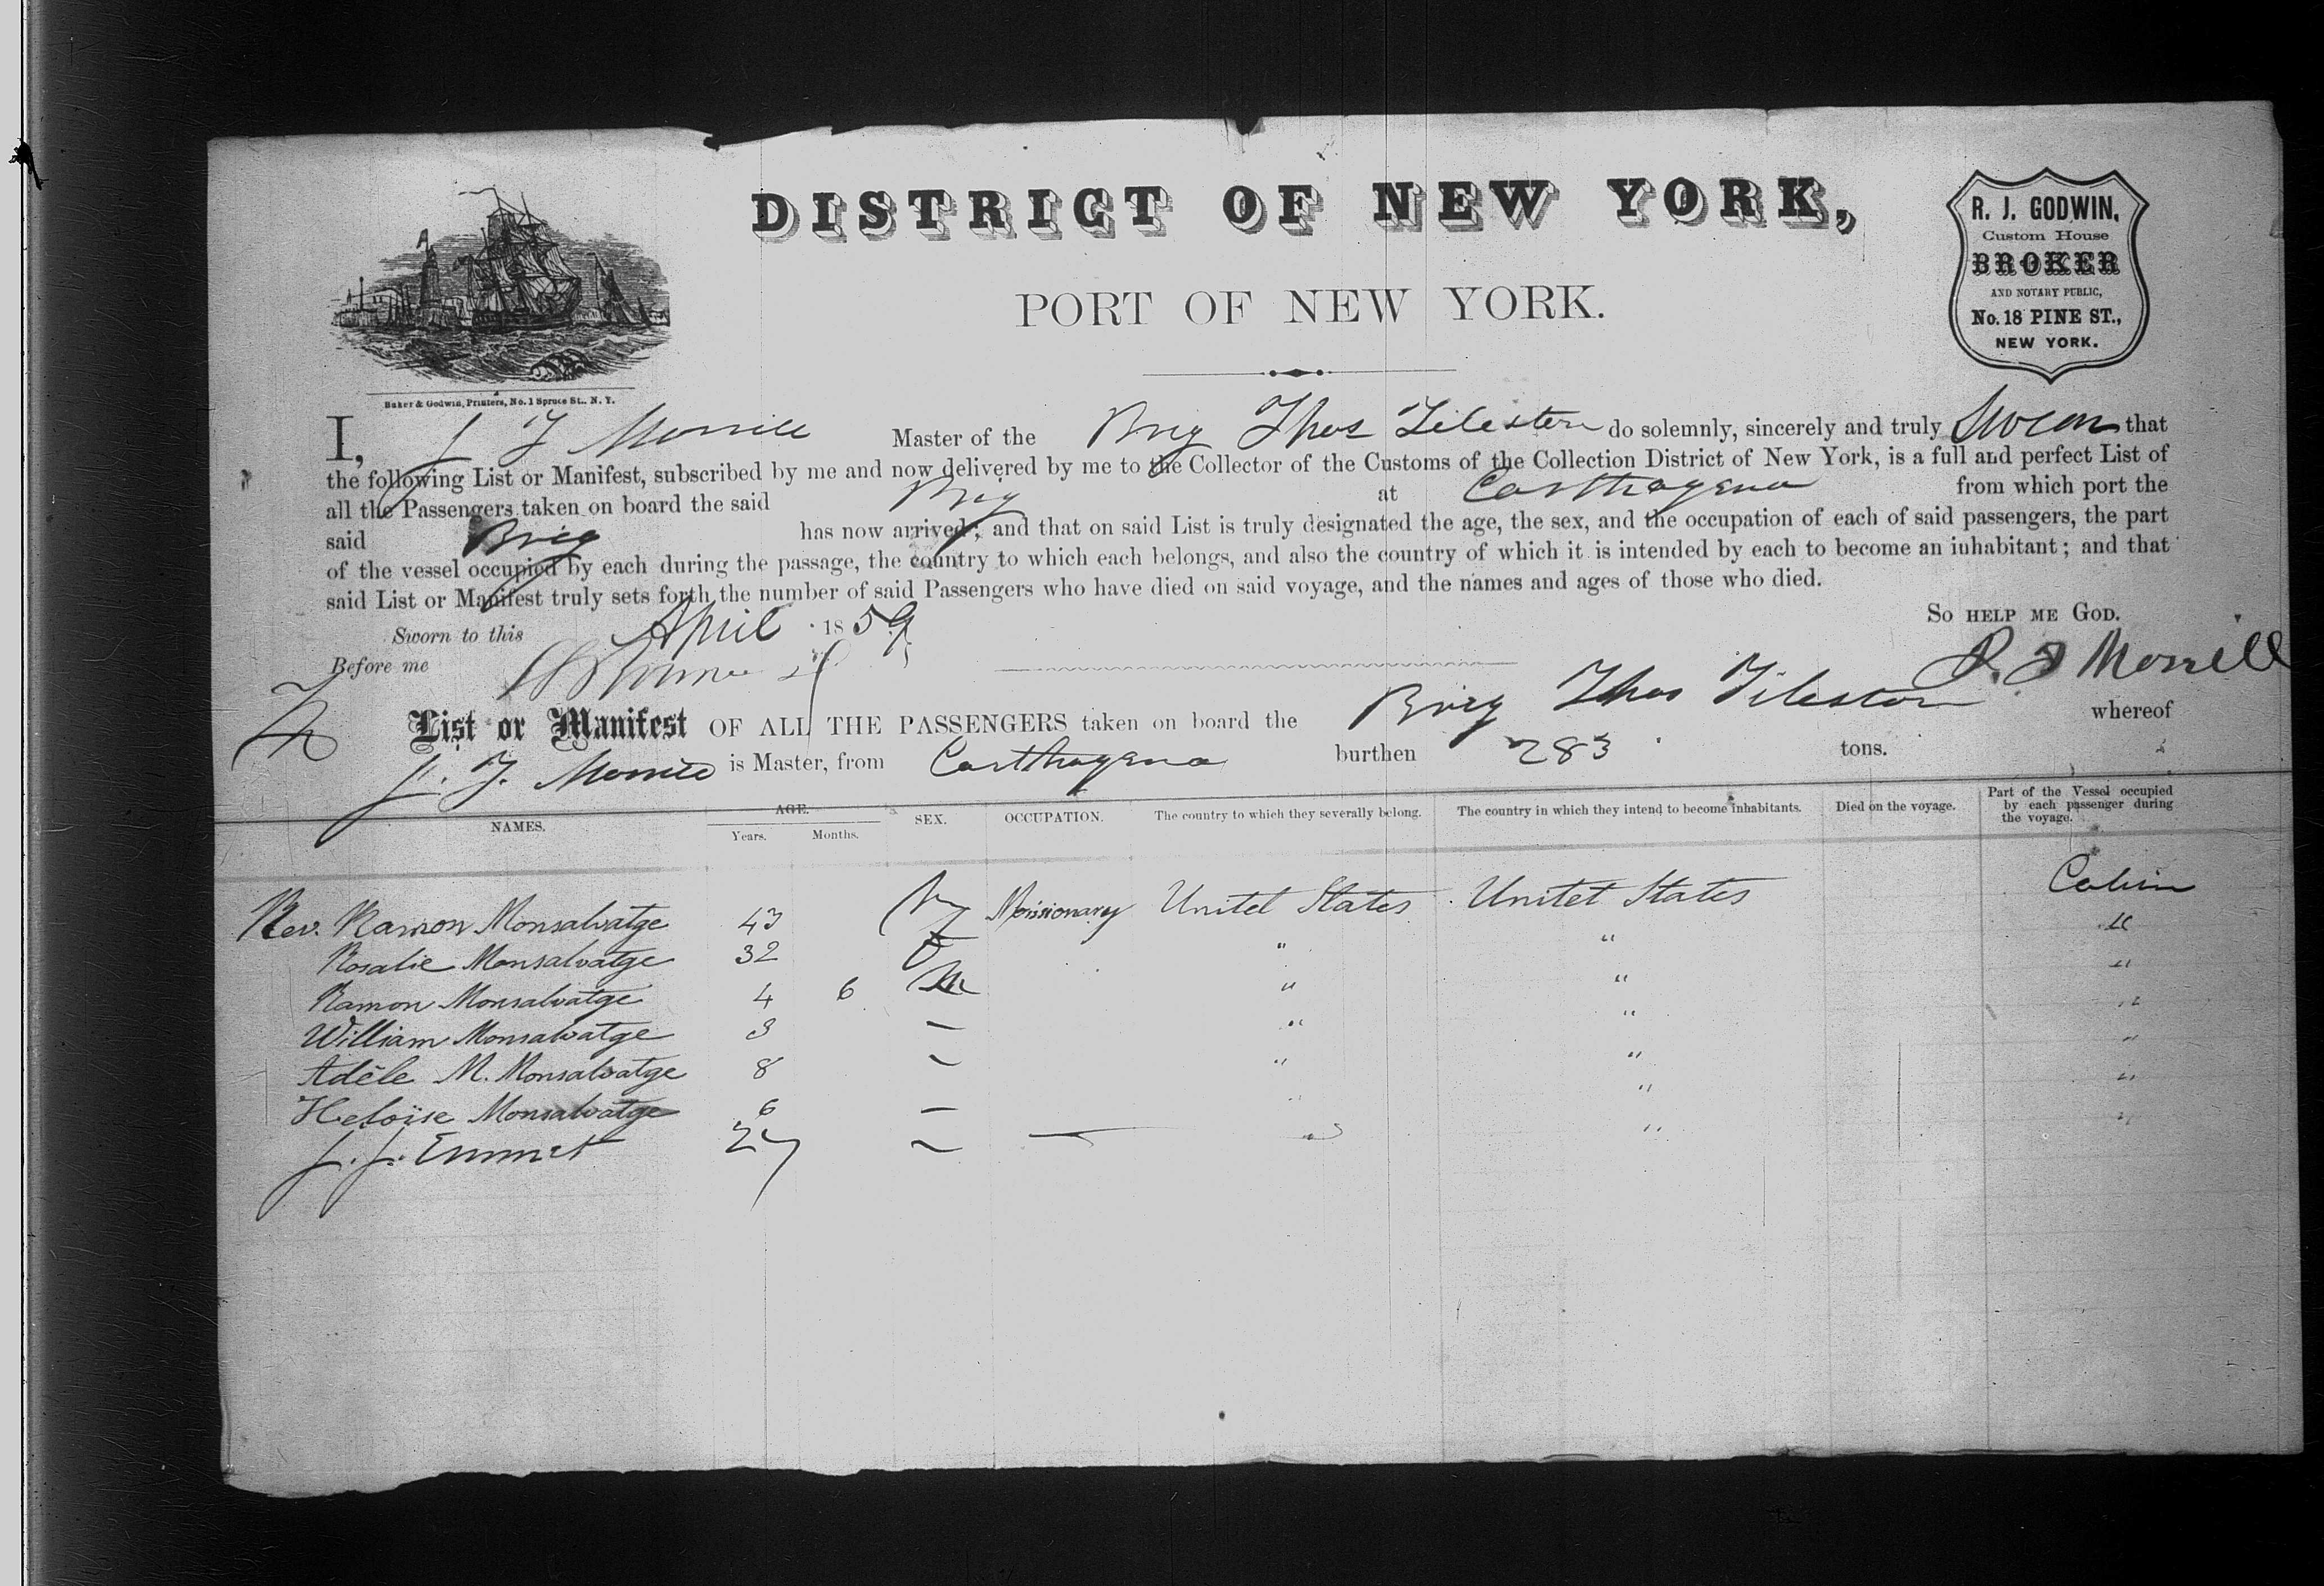 DISTRICT OF NEW YORK,
PORT OF NEW YORK.
R. J. GODWIN,
Custom House
BROKER
AND NOTARY PUBLIC,
No. 18 PINE ST.,
NEW YORK.
Baker & Godwin, Printers, No. 1 Spruce St., N. Y.
I, J F Morrill Master of the Brig Thos Tileston do solemnly, sincerely and truly Swear that
the following List or Manifest, subscribed by me and now delivered by me to the Collector of the Customs of the Collection District of New York, is a full and perfect List of
all the Passengers taken on board the said Brig at Carthagena from which port the
said Brig has now arrived; and that on said List is truly designated the age, the sex, and the occupation of each of said passengers, the part
of the vessel occupied by each during the passage, the country to which each belongs, and also the country of which it is intended by each to become an inhabitant; and that
said List or Manifest truly sets forth the number of said Passengers who have died on said voyage, and the names and ages of those who died.
So HELP ME GOD.
Sworn to this April 1859
Before me
J. F Morrill
List or Manifest OF ALL THE PASSENGERS taken on board the Brig Thos Tileston whereof
J. F. Morrill is Master, from Carthagena burthen 283 tons.
NAMES. AGE. Years. Months. SEX. OCCUPATION. The country to which they severally belong. The country in which they intend to become inhabitants. Died on the voyage. Part of the Vessel occupied by each passenger during the voyage.
Rev. Ramon Monsalvatge 43 M Missionary Unitet States Unitet States Cabin
Rosalie Monsalvatge 32 F " " "
Ramon Monsalvatge 4 6 M " " "
William Monsalvatge 3 — " " "
Adèle M. Monsalvatge 8 — " " "
Heloïse Monsalvatge 6 — " " "
J. J. Emmet 27 — — " " "